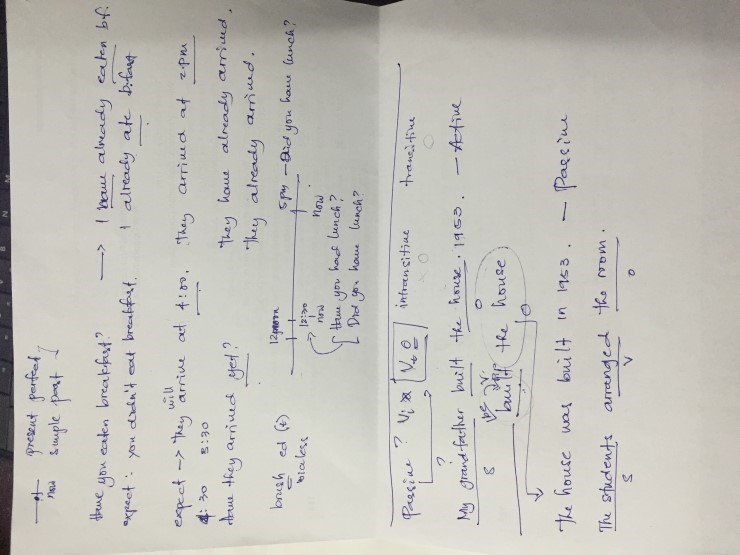 present perfect
now simple past
Have you eaten breakfast? → I have already eaten bf.
expect: you didn't eat breakfast. I already ate b.fast
expect → They will arrive at 4:00. They arrived at 2pm
4:30 5:30
Have they arrived yet? They have already arrived.
They already arrived.
brush ed (t)
voiceless
12pm 5pm – Did you have lunch?
12:30
now now
Have you had lunch?
Did you have lunch?
Passive? Vi x Vt O intransitive transitive
x O O
?
My grandfather built the house. 1953. – Active
S V O
be Vpp
built the house
The house was built in 1953. – Passive
The students arranged the room.
S V O